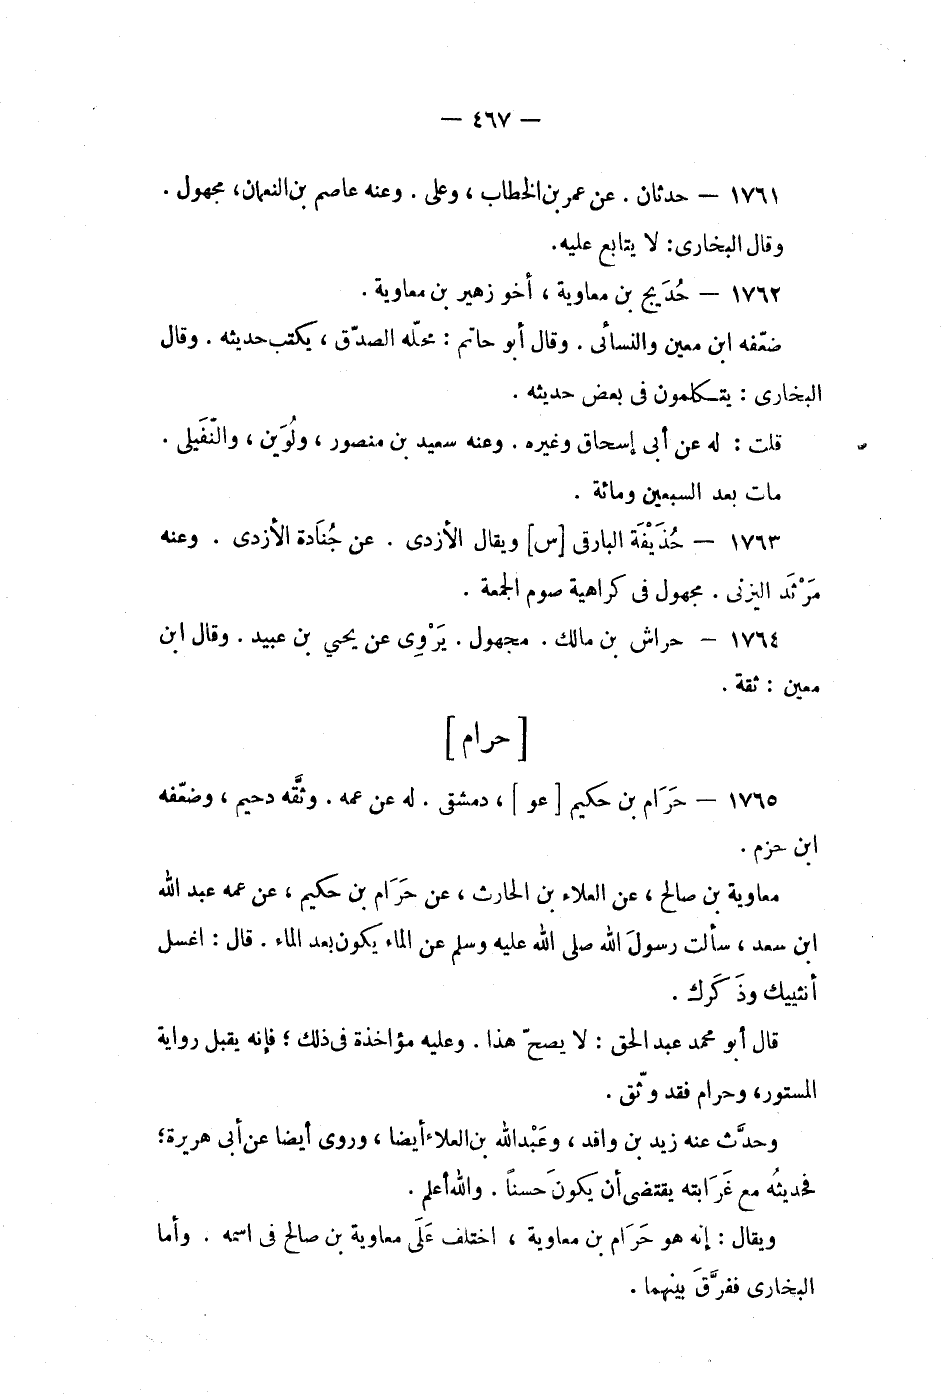 — ٤٦٧ —
١٧٦١ — حدثان . عن عمر بن الخطاب ، وعلى . وعنه عاصم بن النعمان، مجهول .
وقال البخارى: لا يتابع عليه.
١٧٦٢ — حُدَيج بن معاوية ، أخو زهير بن معاوية .
ضعّفه ابن معين والنسأئى . وقال أبو حاتم : محلّه الصدّق ، يكتب حديثه . وقال
البخارى : يتكلمون فى بعض حديثه .
قلت : له عن أبى إسحاق وغيره . وعنه سعيد بن منصور ، ولُوَين ، والنّفَيلى .
مات بعد السبعين ومائة .
١٧٦٣ — حُذَيْفَة البارقى [س] ويقال الأزدى . عن جُنَادة الأزدى . وعنه
مَرْثَد اليزنى . مجهول فى كراهية صوم الجمعة .
١٧٦٤ — حراش بن مالك . مجهول . يَرْوِى عن يحيي بن عبيد . وقال ابن
معين : ثقة .
[ حرام ]
١٧٦٥ — حَرَام بن حكيم [ عو ] ، دمشقى . له عن عمه . وثَّقه دحيم ، وضعّفه
ابن حزم .
معاوية بن صالح ، عن العلاء بن الحارث ، عن حَرَام بن حكيم ، عن عمه عبد الله
ابن سعد ، سألت رسولَ الله صلى الله عليه وسلم عن الماء يكون بعد الماء . قال : اغسل
أنثييك وذَكَرك .
قال أبو محمد عبد الحق : لا يصحّ هذا . وعليه مؤاخذة فى ذلك ؛ فإنه يقبل رواية
المستور، وحرام فقد وثّق .
وحدَّث عنه زيد بن واقد ، وعَبْد الله بن العلاء أيضا ، وروى أيضا عن أبى هريرة؛
فحديثُه مع غَرَابته يقتضى أن يكونَ حسناً . والله أعلم .
ويقال : إنه هو حَرَام بن معاوية ، اختلف عَلَى معاوية بن صالح فى اسمه . وأما
البخارى ففرَّقَ بينهما .